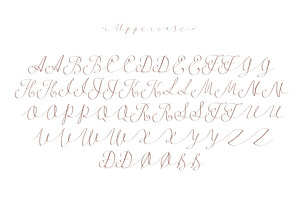 Uppercase
A A B B C C D D E E F F G G
H H I I J J K K L L M M N N
O O P P Q Q R R S S T T U U
V V W W X X Y Y Z Z
D D O O S S